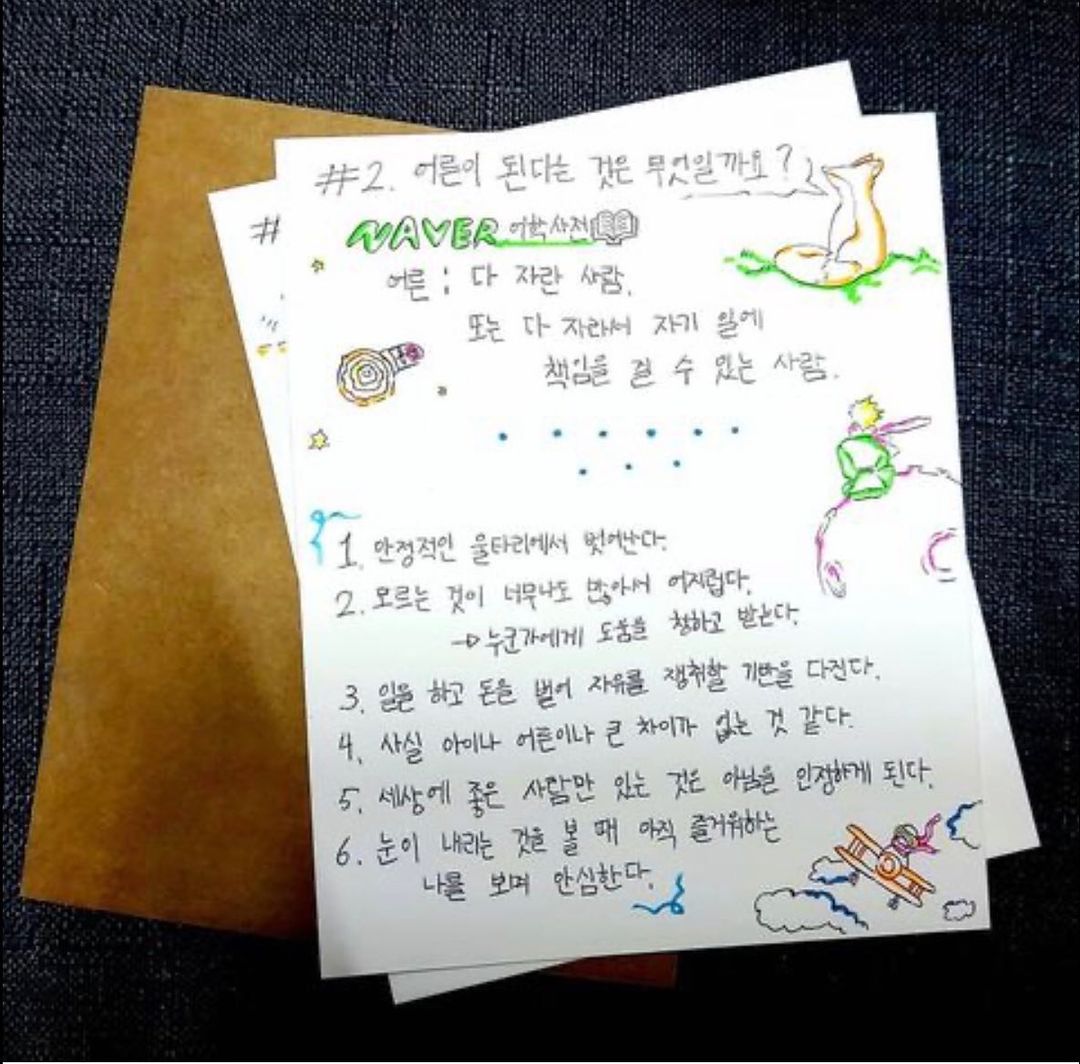 #2. 어른이 된다는 것은 무엇일까요?
NAVER 어학사전
어른 : 다 자란 사람.
또는 다 자라서 자기 일에
책임을 질 수 있는 사람.
1. 안정적인 울타리에서 벗어난다.
2. 모르는 것이 너무나도 많아서 어지럽다.
→ 누군가에게 도움을 청하고 받는다.
3. 일을 하고 돈을 벌어 자유를 쟁취할 기반을 다진다.
4. 사실 아이나 어른이나 큰 차이가 없는 것 같다.
5. 세상에 좋은 사람만 있는 것은 아님을 인정하게 된다.
6. 눈이 내리는 것을 볼 때 아직 즐거워하는
나를 보며 안심한다.
#